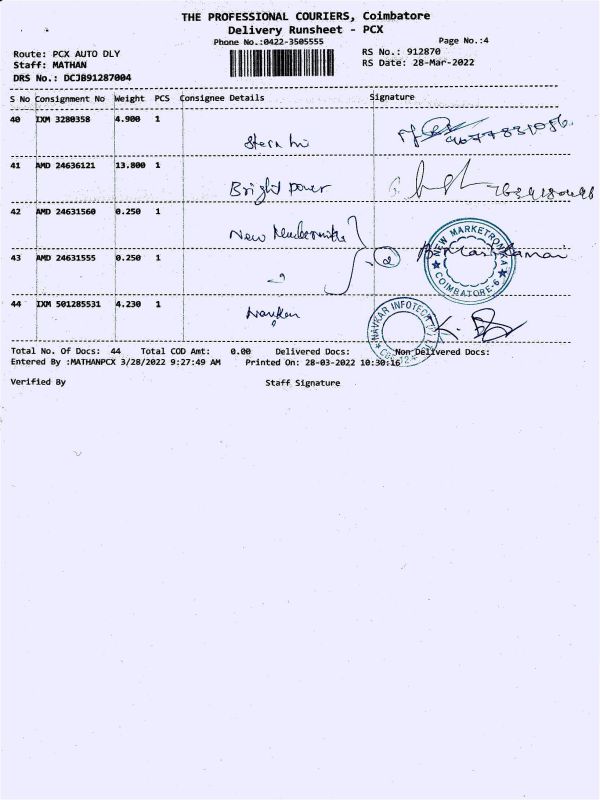 THE PROFESSIONAL COURIERS, Coimbatore
Delivery Runsheet - PCX
Phone No.:0422-3505555
Page No.:4
Route: PCX AUTO DLY
RS No.: 912870
Staff: MATHAN
RS Date: 28-Mar-2022
DRS No.: DCJB91287004
S No Consignment No Weight PCS Consignee Details Signature
40 IXM 3280358 4.900 1
41 AMD 24636121 13.800 1
Bright power
42 AMD 24631560 0.250 1
New
NEW MARKETRON
COIMBATORE-6
43 AMD 24631555 0.250 1
44 IXM 501285531 4.230 1
NAVKAR INFOTECH
Total No. Of Docs: 44 Total COD Amt: 0.00 Delivered Docs: Non Delivered Docs:
Entered By :MATHANPCX 3/28/2022 9:27:49 AM Printed On: 28-03-2022 10:30:16
Verified By Staff Signature